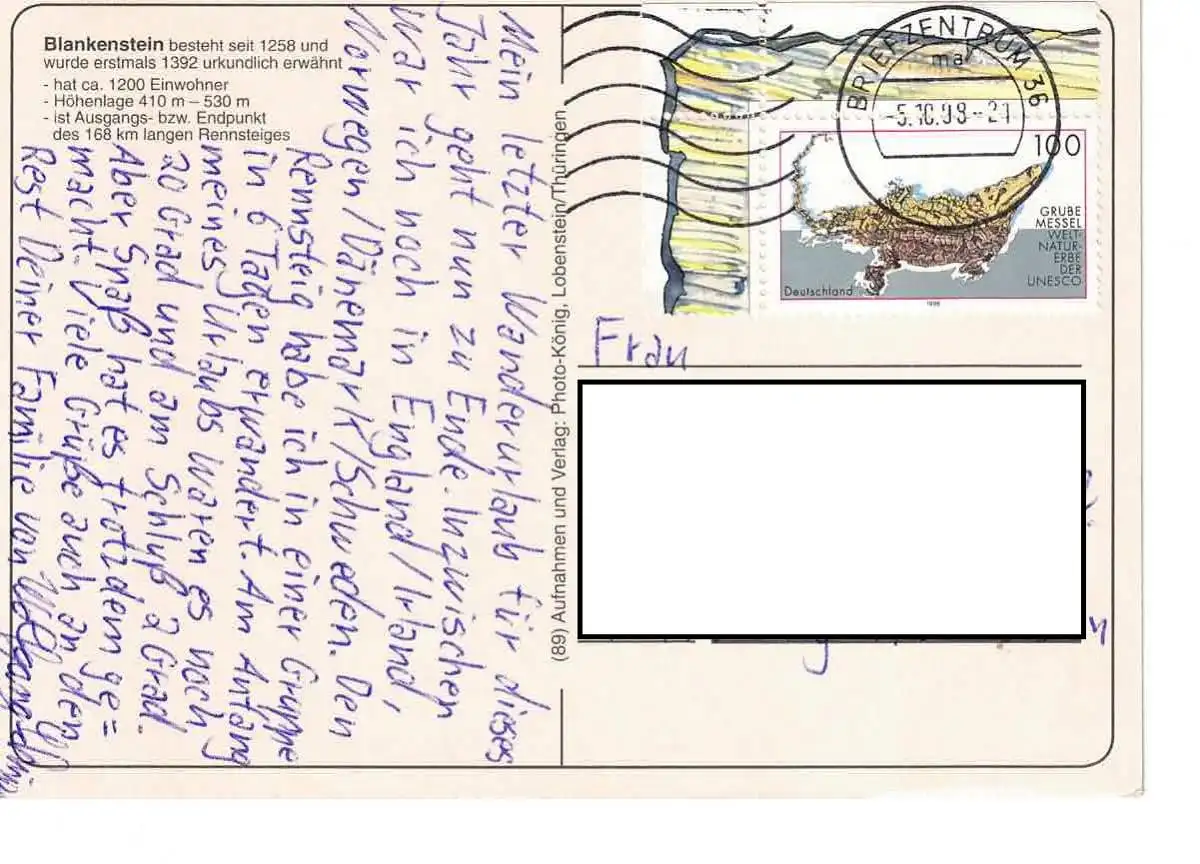 Blankenstein besteht seit 1258 und
wurde erstmals 1392 urkundlich erwähnt
- hat ca. 1200 Einwohner
- Höhenlage 410 m – 530 m
- ist Ausgangs- bzw. Endpunkt
des 168 km langen Rennsteiges
Mein letzter Wanderurlaub für dieses
Jahr geht nun zu Ende. Inzwischen
war ich noch in England/Irland,
Norwegen/Dänemark/Schweden. Den
Rennsteig habe ich in einer Gruppe
in 6 Tagen erwandert. Am Anfang
meines Urlaubs waren es noch
20 Grad und am Schluß 2 Grad.
Aber Spaß hat es trotzdem ge=
macht. Viele Grüße auch an den
Rest Deiner Familie von Wolfgang
(89) Aufnahmen und Verlag: Photo-König, Lobenstein/Thüringen
BRIEFZENTRUM 36
ma
-5.10.98-21
100
GRUBE
MESSEL
WELT-
NATUR-
ERBE
DER
UNESCO
Deutschland
1998
Frau